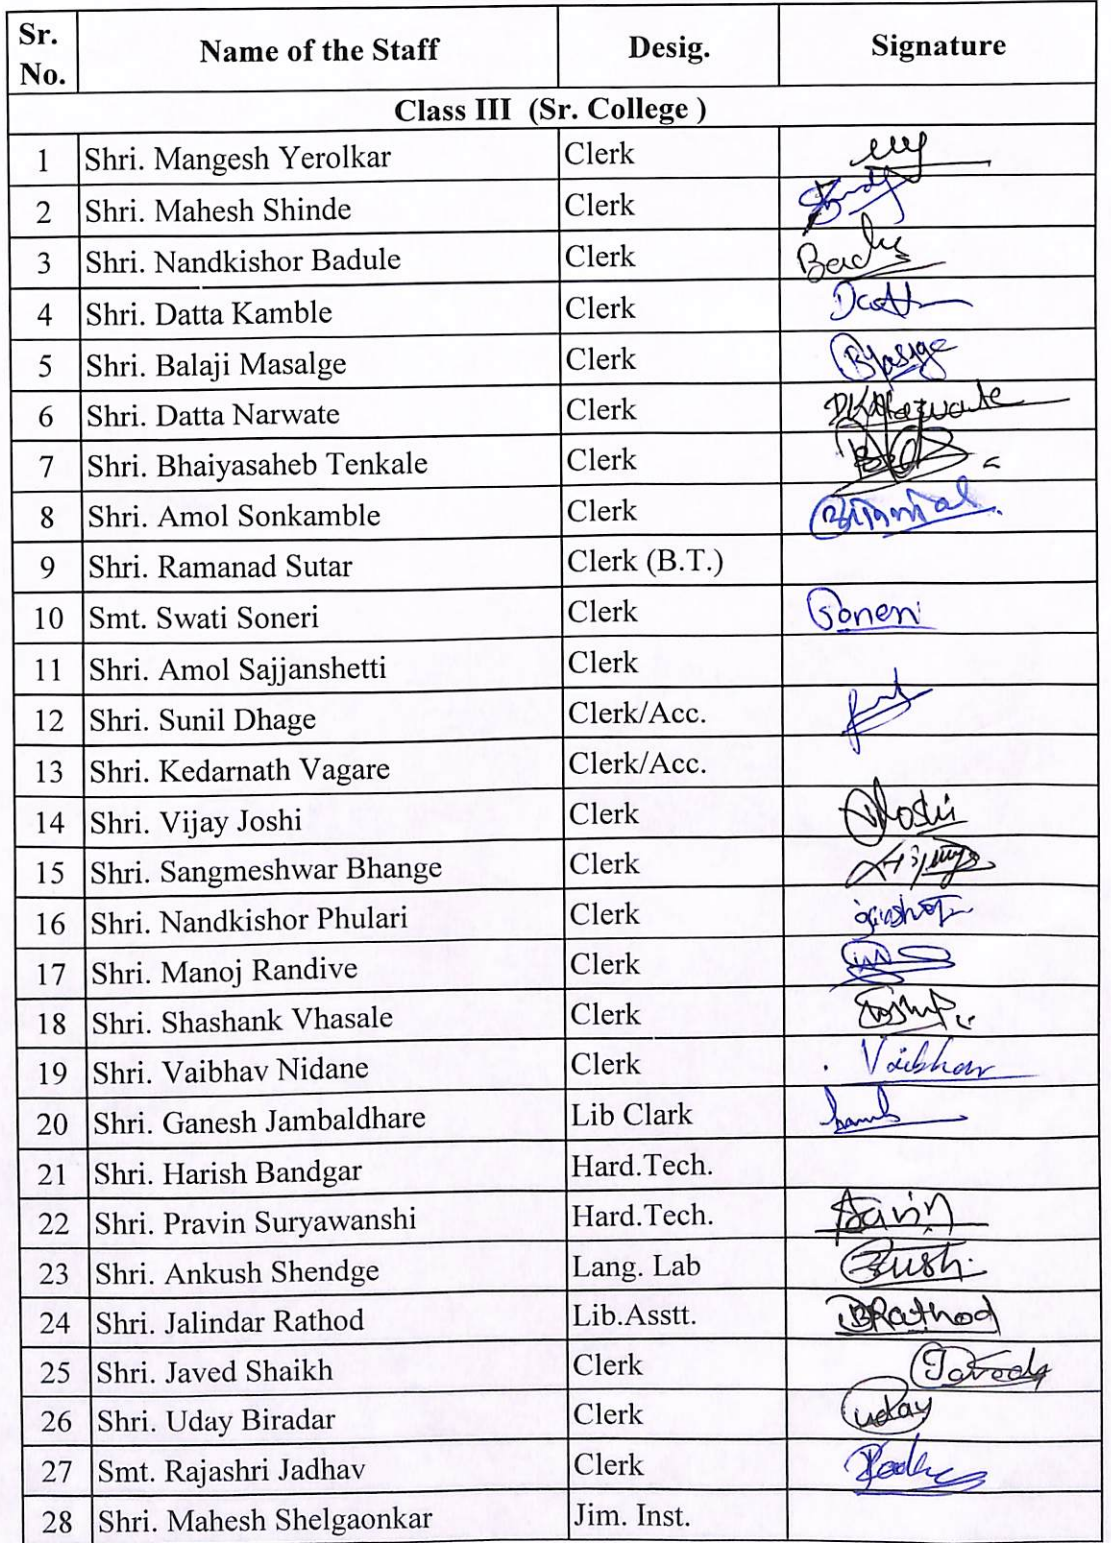 Sr. No. Name of the Staff Desig. Signature
Class III (Sr. College )
1 Shri. Mangesh Yerolkar Clerk
2 Shri. Mahesh Shinde Clerk
3 Shri. Nandkishor Badule Clerk
4 Shri. Datta Kamble Clerk
5 Shri. Balaji Masalge Clerk
6 Shri. Datta Narwate Clerk
7 Shri. Bhaiyasaheb Tenkale Clerk
8 Shri. Amol Sonkamble Clerk
9 Shri. Ramanad Sutar Clerk (B.T.)
10 Smt. Swati Soneri Clerk Soneri
11 Shri. Amol Sajjanshetti Clerk
12 Shri. Sunil Dhage Clerk/Acc.
13 Shri. Kedarnath Vagare Clerk/Acc.
14 Shri. Vijay Joshi Clerk
15 Shri. Sangmeshwar Bhange Clerk
16 Shri. Nandkishor Phulari Clerk
17 Shri. Manoj Randive Clerk
18 Shri. Shashank Vhasale Clerk
19 Shri. Vaibhav Nidane Clerk Vaibhav
20 Shri. Ganesh Jambaldhare Lib Clark
21 Shri. Harish Bandgar Hard.Tech.
22 Shri. Pravin Suryawanshi Hard.Tech.
23 Shri. Ankush Shendge Lang. Lab
24 Shri. Jalindar Rathod Lib.Asstt. BRathod
25 Shri. Javed Shaikh Clerk
26 Shri. Uday Biradar Clerk uday
27 Smt. Rajashri Jadhav Clerk
28 Shri. Mahesh Shelgaonkar Jim. Inst.